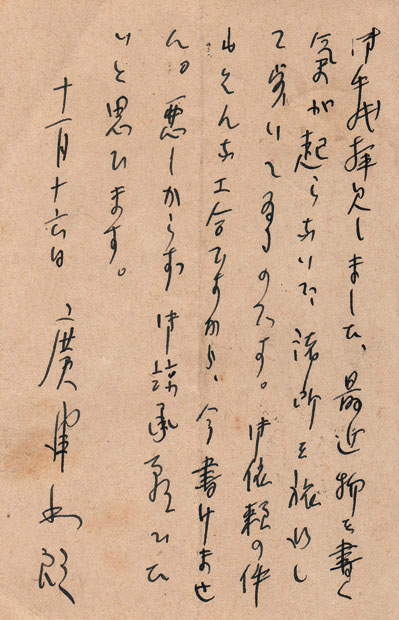 御手紙拝見しました、最近物を書く
気が起らないで、諸所を旅行し
て歩いてゐるのです。御依頼の件
もそんな工合ですから、今書けませ
ん。悪しからず御諒承願ひた
いと思ひます。
十一月十六日 廣津和郎